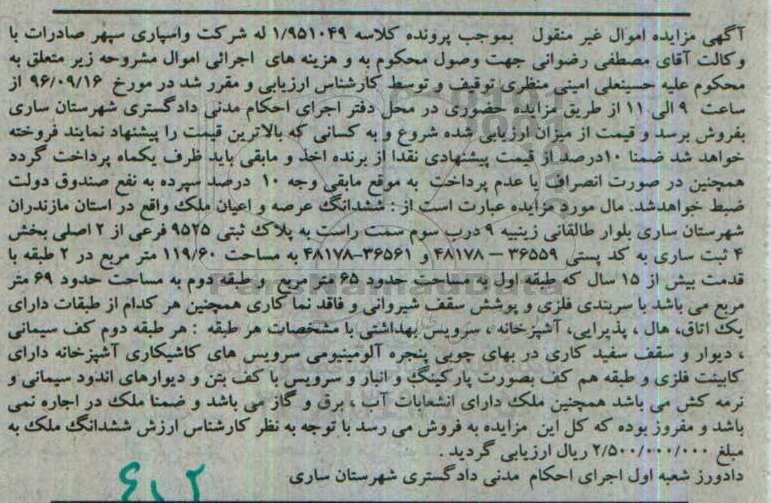 آگهی مزایده اموال غیر منقول بموجب پرونده کلاسه ۱/۹۵۱۰۴۹ له شرکت واسپاری سپهر صادرات با
وکالت آقای مصطفی رضوانی جهت وصول محکوم به و هزینه های اجرائی اموال مشروحه زیر متعلق به
محکوم علیه حسینعلی امینی منظری توقیف و توسط کارشناس ارزیابی و مقرر شد در مورخ ۹۶/۰۹/۱۶ از
ساعت ۹ الی ۱۱ از طریق مزایده حضوری در محل دفتر اجرای احکام مدنی دادگستری شهرستان ساری
بفروش برسد و قیمت از میزان ارزیابی شده شروع و به کسانی که بالاترین قیمت را پیشنهاد نمایند فروخته
خواهد شد ضمنا ۱۰درصد از قیمت پیشنهادی نقدا از برنده اخذ و مابقی باید ظرف یکماه پرداخت گردد
همچنین در صورت انصراف یا عدم پرداخت به موقع مابقی وجه ۱۰ درصد سپرده به نفع صندوق دولت
ضبط خواهدشد: مال مورد مزایده عبارت است از : ششدانگ عرصه و اعیان ملک واقع در استان مازندران
شهرستان ساری بلوار طالقانی زینبیه ۹ درب سوم سمت راست به پلاک ثبتی ۹۵۲۵ فرعی از ۲ اصلی بخش
۴ ثبت ساری به کد پستی ۳۶۵۵۹ – ۴۸۱۷۸ و ۳۶۵۶۱-۴۸۱۷۸ به مساحت ۱۱۹/۶۰ متر مربع در ۲ طبقه با
قدمت بیش از ۱۵ سال که طبقه اول با مساحت حدود ۶۵ متر مربع و طبقه دوم به مساحت حدود ۶۹ متر
مربع می باشد با سربندی فلزی و پوشش سقف شیروانی و فاقد نما کاری همچنین هر کدام از طبقات دارای
یک اتاق، هال ، پذیرایی، آشپزخانه ، سرویس بهداشتی با مشخصات هر طبقه : هر طبقه دوم کف سیمانی
، دیوار و سقف سفید کاری در بهای چوبی پنجره آلومینیومی سرویس های کاشیکاری آشپزخانه دارای
کابینت فلزی و طبقه هم کف بصورت پارکینگ و انبار و سرویس با کف بتن و دیوارهای اندود سیمانی و
نرمه کش می باشد همچنین ملک دارای انشعابات آب ، برق و گاز می باشد و ضمنا ملک در اجاره نمی
باشد و مفروز بوده که کل این مزایده به فروش می رسد با توجه به نظر کارشناس ارزش ششدانگ ملک به
مبلغ ۲/۵۰۰/۰۰۰/۰۰۰ ریال ارزیابی گردید .
دادورز شعبه اول اجرای احکام مدنی دادگستری شهرستان ساری